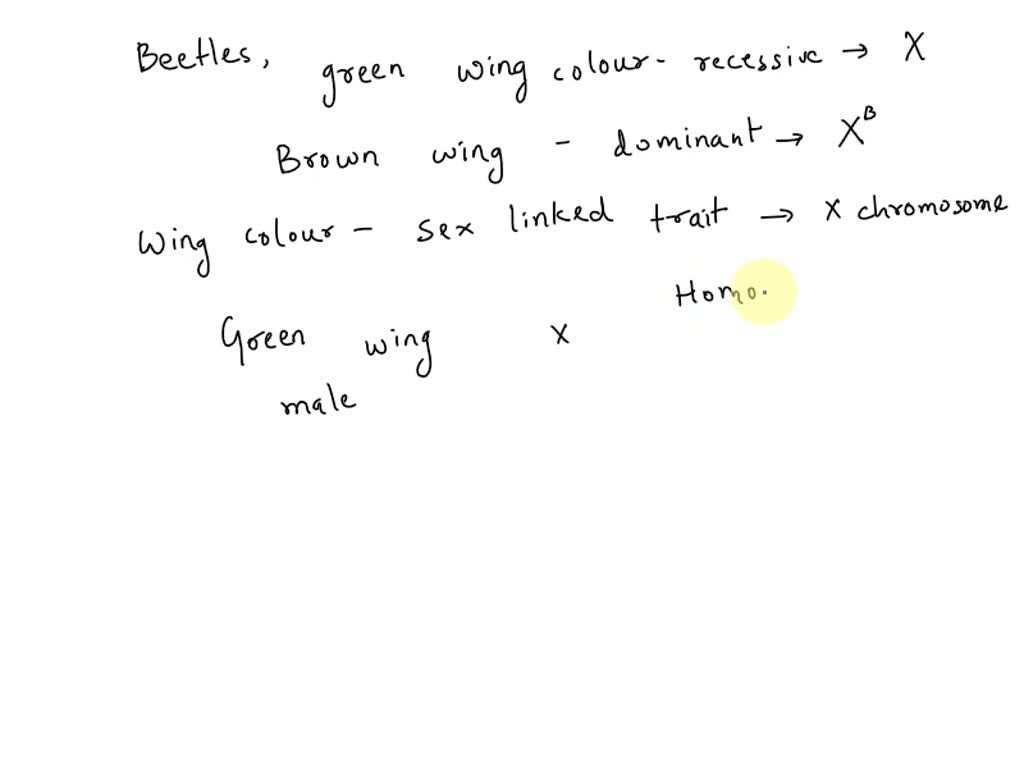 Beetles, green wing colour - recessive → X
Brown wing - dominant → Xᴮ
Wing colour - sex linked trait → X chromosome
Homo.
Green wing X
male